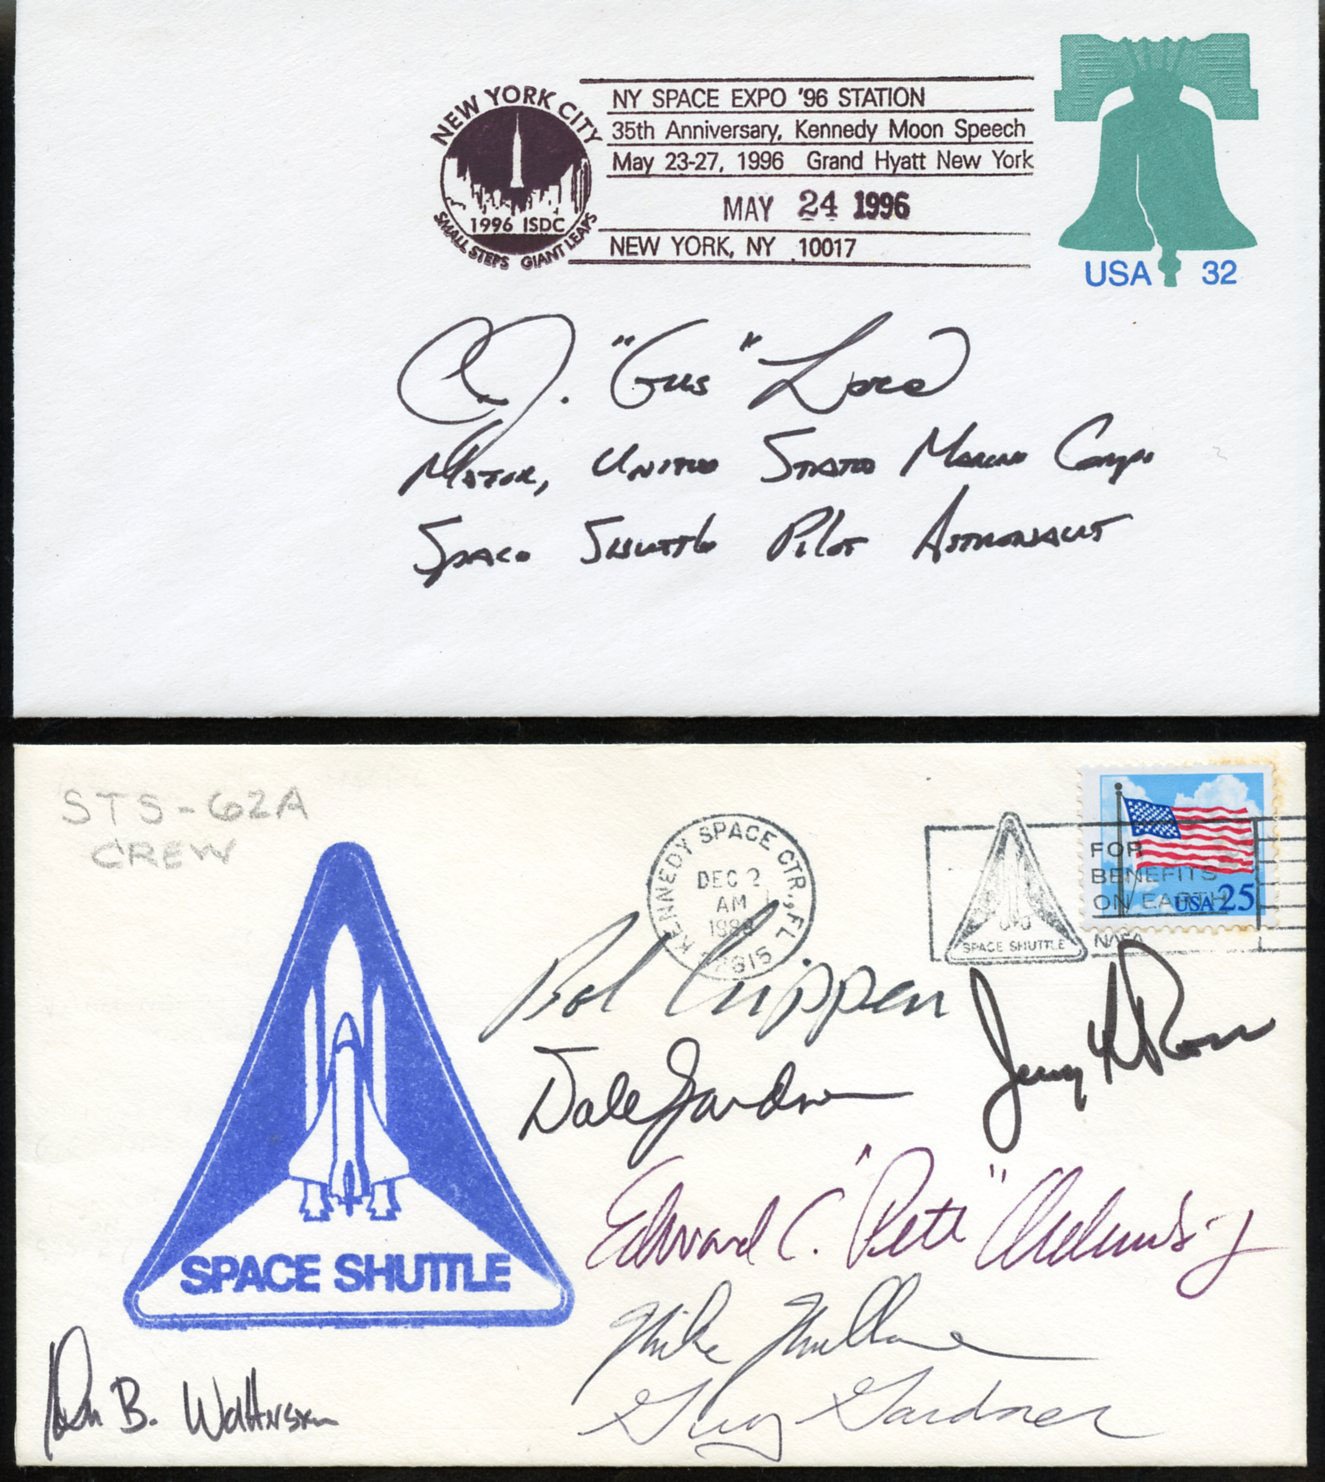 NEW YORK CITY
1996 ISDC
SMALL STEPS GIANT LEAPS
NY SPACE EXPO '96 STATION
35th Anniversary, Kennedy Moon Speech
May 23-27, 1996 Grand Hyatt New York
MAY 24 1996
NEW YORK, NY 10017
USA 32
C.J. "Gus" Loria
Major, United States Marine Corps
Space Shuttle Pilot Astronaut
STS-62A
CREW
SPACE SHUTTLE
KENNEDY SPACE CTR., FL
DEC 2
AM
SPACE SHUTTLE
FOR
BENEFITS
ON EARTH
NASA
USA 25
Bob Crippen
Jerry L. Ross
Dale Gardner
Edward C. "Pete" Aldridge, Jr.
Mike Mullane
Guy Gardner